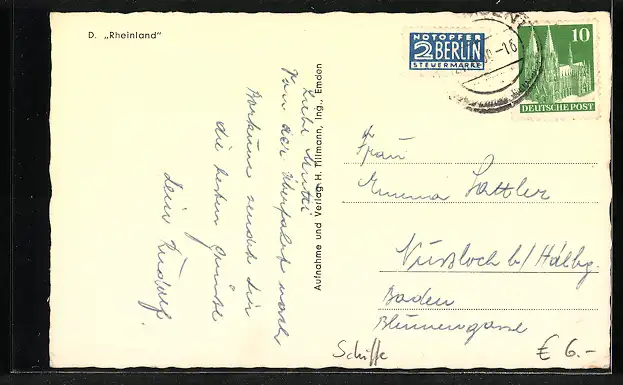 D. „Rheinland"
NOTOPFER
2 BERLIN
STEUERMARKE
10
DEUTSCHE POST
Liebe Mutti
Von der Überfahrt nach
Borkum sendet dir
die besten Grüsse
dein Rudolf.
Aufnahme und Verlag H. Tillmann, Ing., Emden
Frau
Emma Sattler
Nußloch b/Hdlbg.
Baden
Blumengasse
Schiffe
€ 6.-